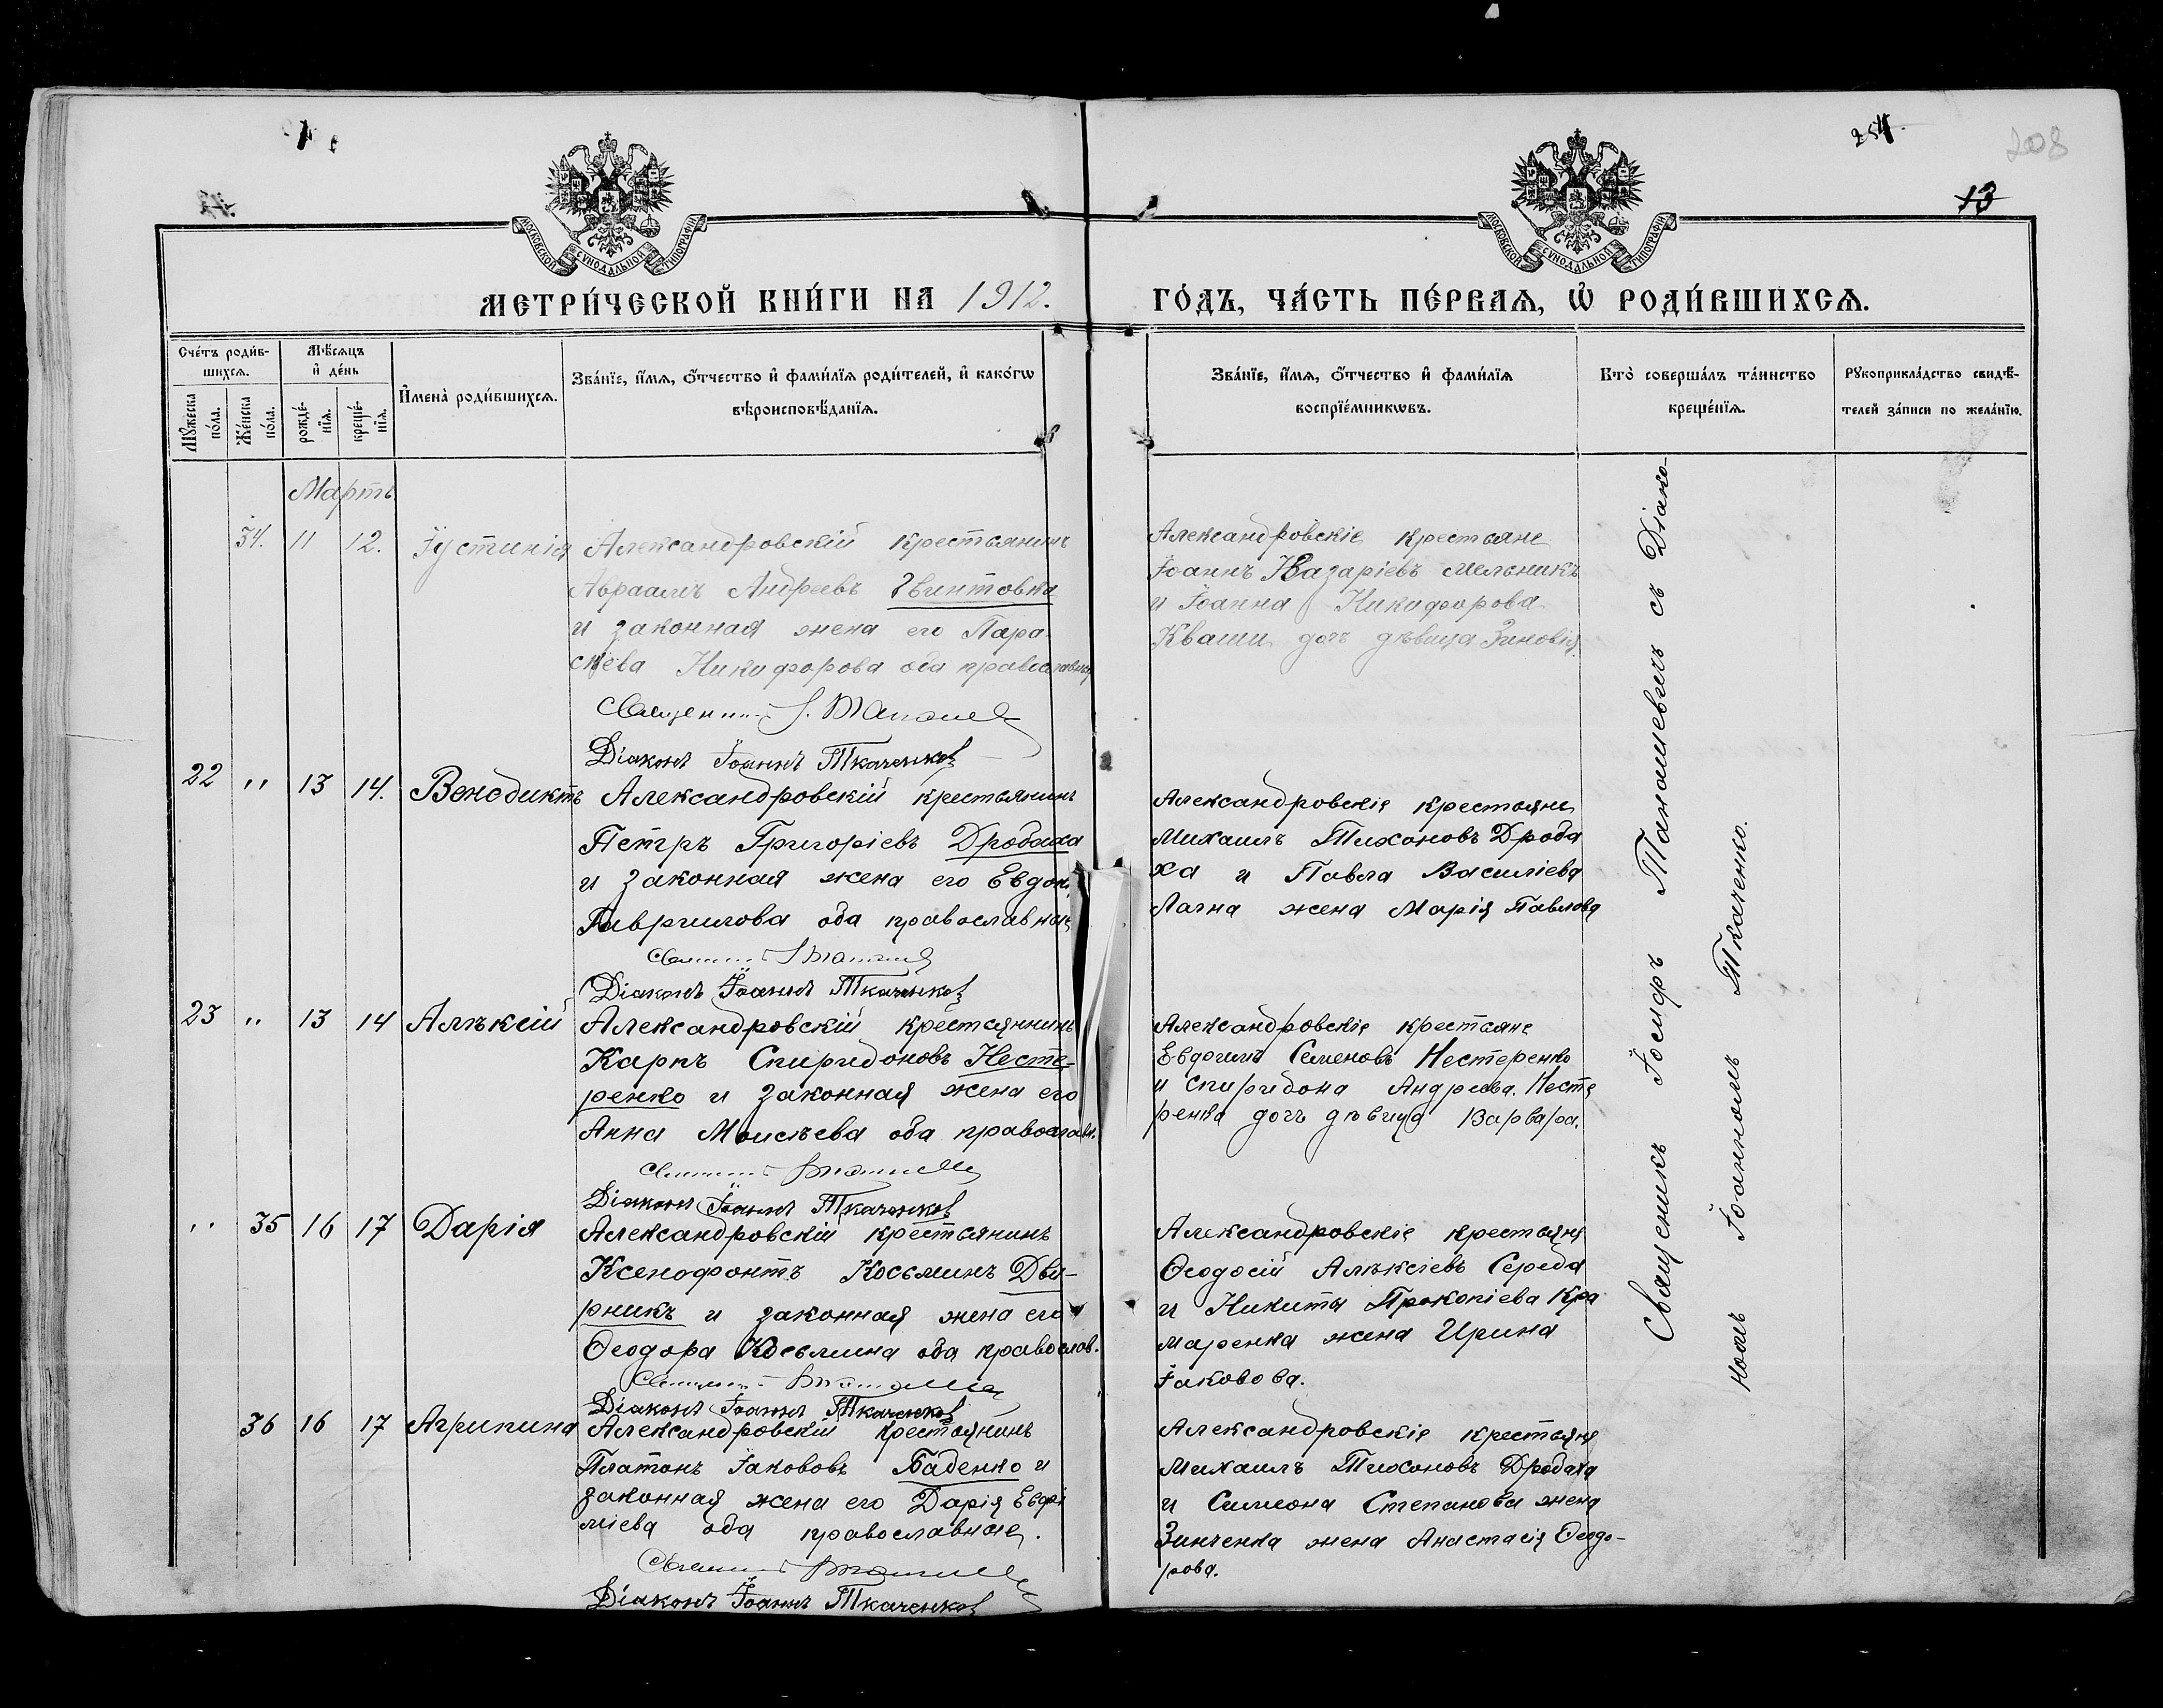 254.
208
13
МОСКОВСКОЙ СѴНОДАЛЬНОЙ ТИПОГРАФИИ
МОСКОВСКОЙ СѴНОДАЛЬНОЙ ТИПОГРАФИИ
МЕТРИ́ЧЕСКОЙ КНИ́ГИ НА 1912.
ГО́ДЪ, ЧА́СТЬ ПЕ́РВАѦ, Ѡ РОДИ́ВШИХСѦ.
Сче́тъ роди́в-
шихсѧ.
Мꙋ́жеска
по́ла.
Же́нска
по́ла.
Мѣ́сѧцъ
и҆ де́нь
рожде́-
нїѧ.
креще́-
нїѧ.
И҆мена̀ роди́вшихсѧ.
Зва́нїе, и҆́мѧ, ѻ҆́тчество и҆ фами́лїѧ роди́телей, и҆ како́гѡ
вѣроисповѣ́данїѧ.
Зва́нїе, и҆́мѧ, ѻ҆́тчество и҆ фами́лїѧ
воспрїе́мникѡвъ.
Кто̀ соверша́лъ та́инство
креще́нїѧ.
Рꙋкоприкла́дство свидѣ́-
телей за́писи по жела́нїю.
Мартъ
34. 11 12. Іустинія
Александровскій крестьянинъ
Авраамъ Андреевъ Гвинтовка
и законная жена его Пара-
скева Никифорова оба православн.
Священникъ І. Танашев
Діаконъ Іоаннъ Ткаченков
Александровскіе крестьяне
Іоаннъ Назаріевъ Мельникъ
и Іоанна Никифорова
Кваши дочь дѣвица Зиновія.
22 " 13 14. Венедиктъ
Александровскій крестьянинъ
Петръ Григоріевъ Дробаха
и законная жена его Евдок.
Гавриилова оба православные
Діаконъ Іоаннъ Ткаченков
Александровскіе крестьяне
Михаилъ Тихоновъ Дроба
ха и Павла Василіева
Лагна жена Марія Павлова
23 " 13 14 Алѣксій
Александровскій крестьянинъ
Карпъ Спиридоновъ Несте-
ренко и законная жена его
Анна Моисѣева оба православн.
Діаконъ Іоаннъ Ткаченков
Александровскіе крестьяне
Евдокимъ Семеновъ Нестеренко
и Спиридона Андреева Несте
ренка дочь дѣвица Варвара.
" 35 16 17 Дарія
Александровскій крестьянинъ
Ксенофонтъ Косьминъ Дви-
рникъ и законная жена его
Ѳеодора Косьмина оба православ.
Діаконъ Іоаннъ Ткаченков
Александровскіе крестьяне
Ѳеодосій Алѣксіевъ Середа
и Никиты Прокопіева Кра
маренка жена Ирина
Іаковова.
36 16 17 Агрипина
Александровскій крестьянинъ
Платонъ Іаковов Баденко и
законная жена его Дарія Евфи
міева оба православные.
Діаконъ Іоаннъ Ткаченков
Александровскіе крестьяне
Михаилъ Тихоновъ Дробаха
и Симеона Степанова жена
Зинченка жена Анастасія Ѳеодо-
рова.
Священникъ Іосифъ Танашевичъ съ Діако-
номъ Іоанномъ Ткаченко.